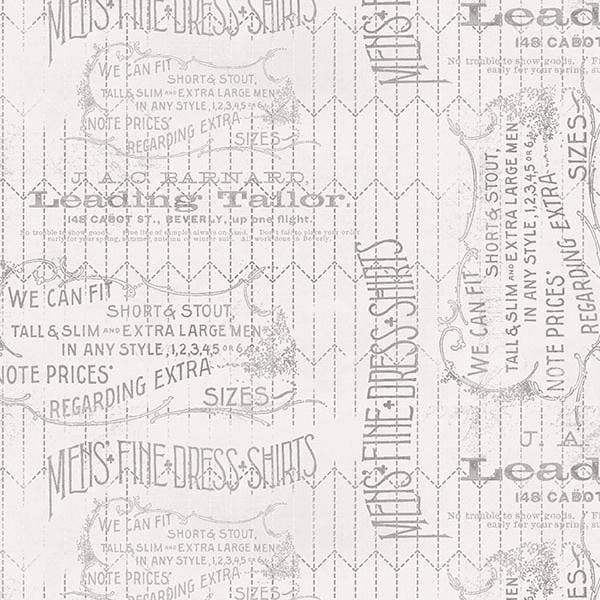 MENS' FINE DRESS SHIRTS
WE CAN FIT
SHORT & STOUT,
TALL & SLIM AND EXTRA LARGE MEN
IN ANY STYLE, 1,2,3,4,5 OR 6
NOTE PRICES
REGARDING EXTRA
SIZES
J. A. C. BARNARD,
Leading Tailor.
148 CABOT ST., BEVERLY, up one flight.
No trouble to show goods. Fine line of samples always on hand. Don't fail to place your order
early for your spring, summer, autumn or winter suit. All work done in Beverly.
WE CAN FIT
SHORT & STOUT,
TALL & SLIM AND EXTRA LARGE MEN
IN ANY STYLE, 1,2,3,4,5 OR 6
NOTE PRICES
REGARDING EXTRA
SIZES
MENS' FINE DRESS SHIRTS
WE CAN FIT
SHORT & STOUT,
TALL & SLIM AND EXTRA LARGE MEN
IN ANY STYLE, 1,2,3,4,5 OR 6
NOTE PRICES
REGARDING EXTRA
SIZES
MENS'
MENS' FINE DRESS SHIRTS
Lead
148 CABOT
No trouble to show goods.
early for your spring, su
WE CAN FIT
SHORT & STOUT,
TALL & SLIM AND EXTRA LARGE MEN
IN ANY STYLE, 1,2,3,4,5 OR 6
NOTE PRICES
REGARDING EXTRA
SIZES
J. A.
Lead
148 CABOT
No trouble to show goods.
early for your spring, su